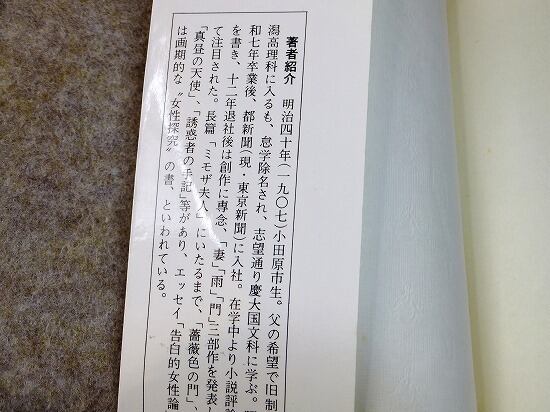 著者紹介 明治四十年(一九〇七)小田原市生。父の希望で旧制
潟高理科に入るも、怠学除名され、志望通り慶大国文科に学ぶ。
和七年卒業後、都新聞(現・東京新聞)に入社。在学中より小説評論
を書き、十二年退社後は創作に専念、「妻」「雨」「門」三部作を発表し
て注目された。長篇「ミモザ夫人」にいたるまで、「薔薇色の門」、
「真昼の天使」、「誘惑者の手記」等があり、エッセイ「告白的女性論
は画期的な〝女性探究〟の書、といわれている。